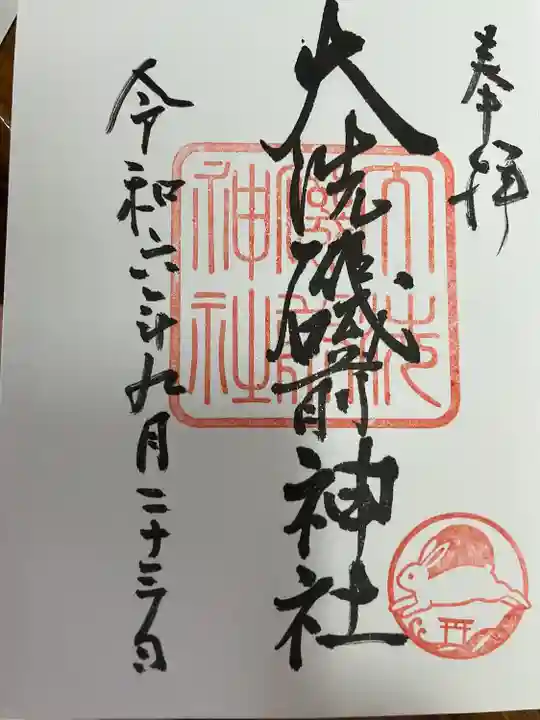 奉拝
大洗磯前神社
大洗磯前神社
令和六年九月二十三日